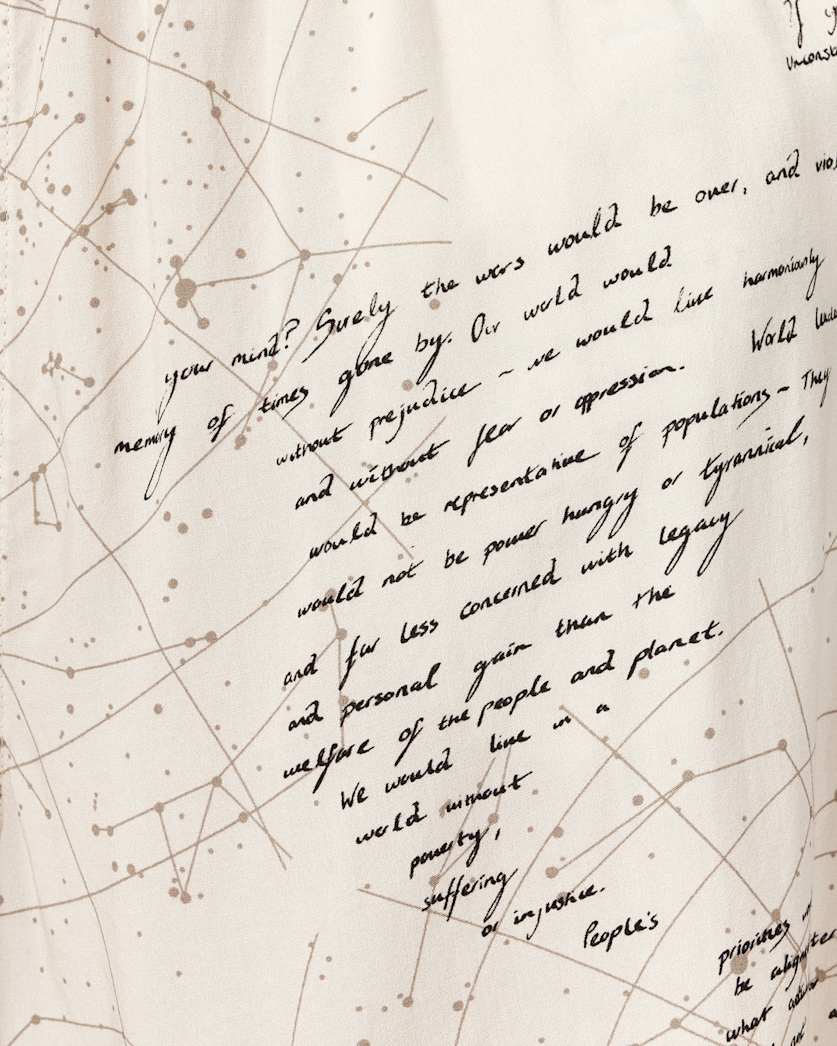 If
your mind? Surely the wars would be over, and
memory of times gone by. Our world would
without prejudice ~ we would live harmoniously
and without fear or oppression. World
would be representative of populations – They
would not be power hungry or tyrannical,
and far less concerned with legacy
and personal gain than the
welfare of the people and planet.
We would live in a
world without
poverty,
suffering
or injustice.
People's
priorities
be
what